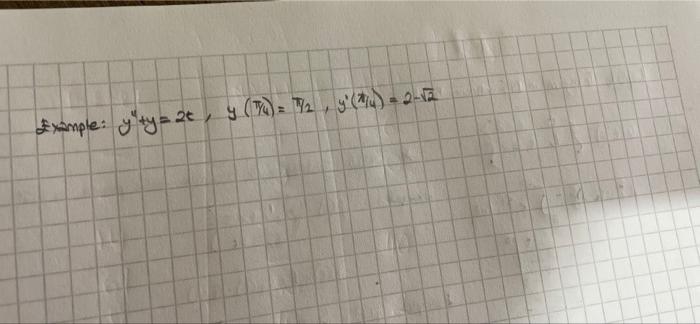 Example: y"+y=2t, y(π/4)=π/2, y'(π/4)=2-√2